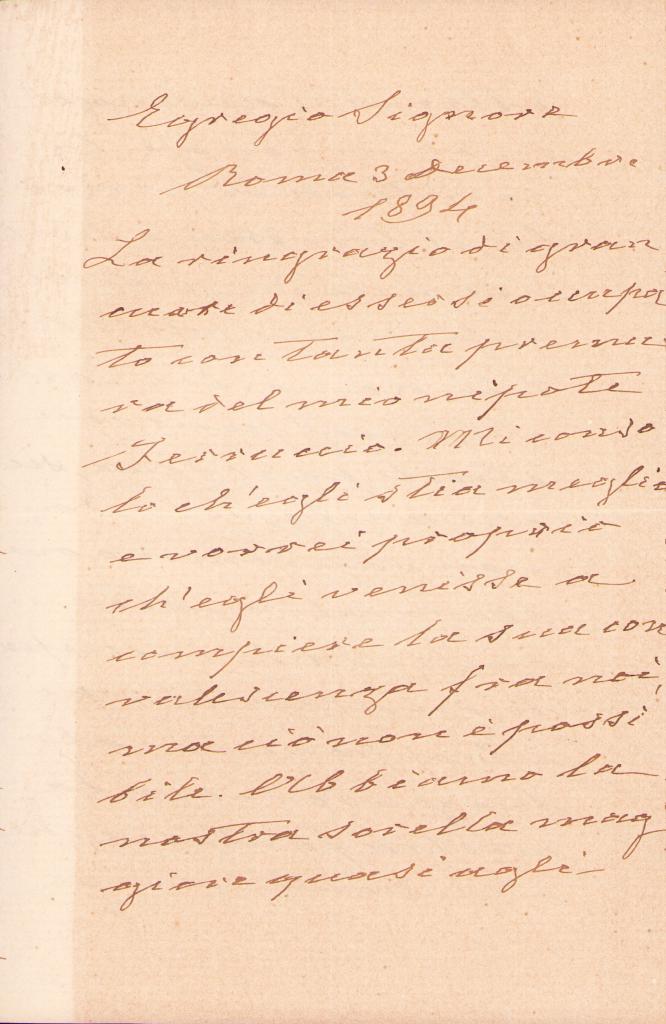 Egregio Signore
Roma 3 Decembre
1894
La ringrazio di gran
cuore di essersi occupa
to con tanta premu
ra del mio nipote
Ferruccio. Mi conso
lo ch'egli stia meglio
e vorrei proprio
ch'egli venisse a
compiere la sua con
valescenza fra noi,
ma ciò non è possi
bile. Abbiamo la
nostra sorella mag
giore quasi agli